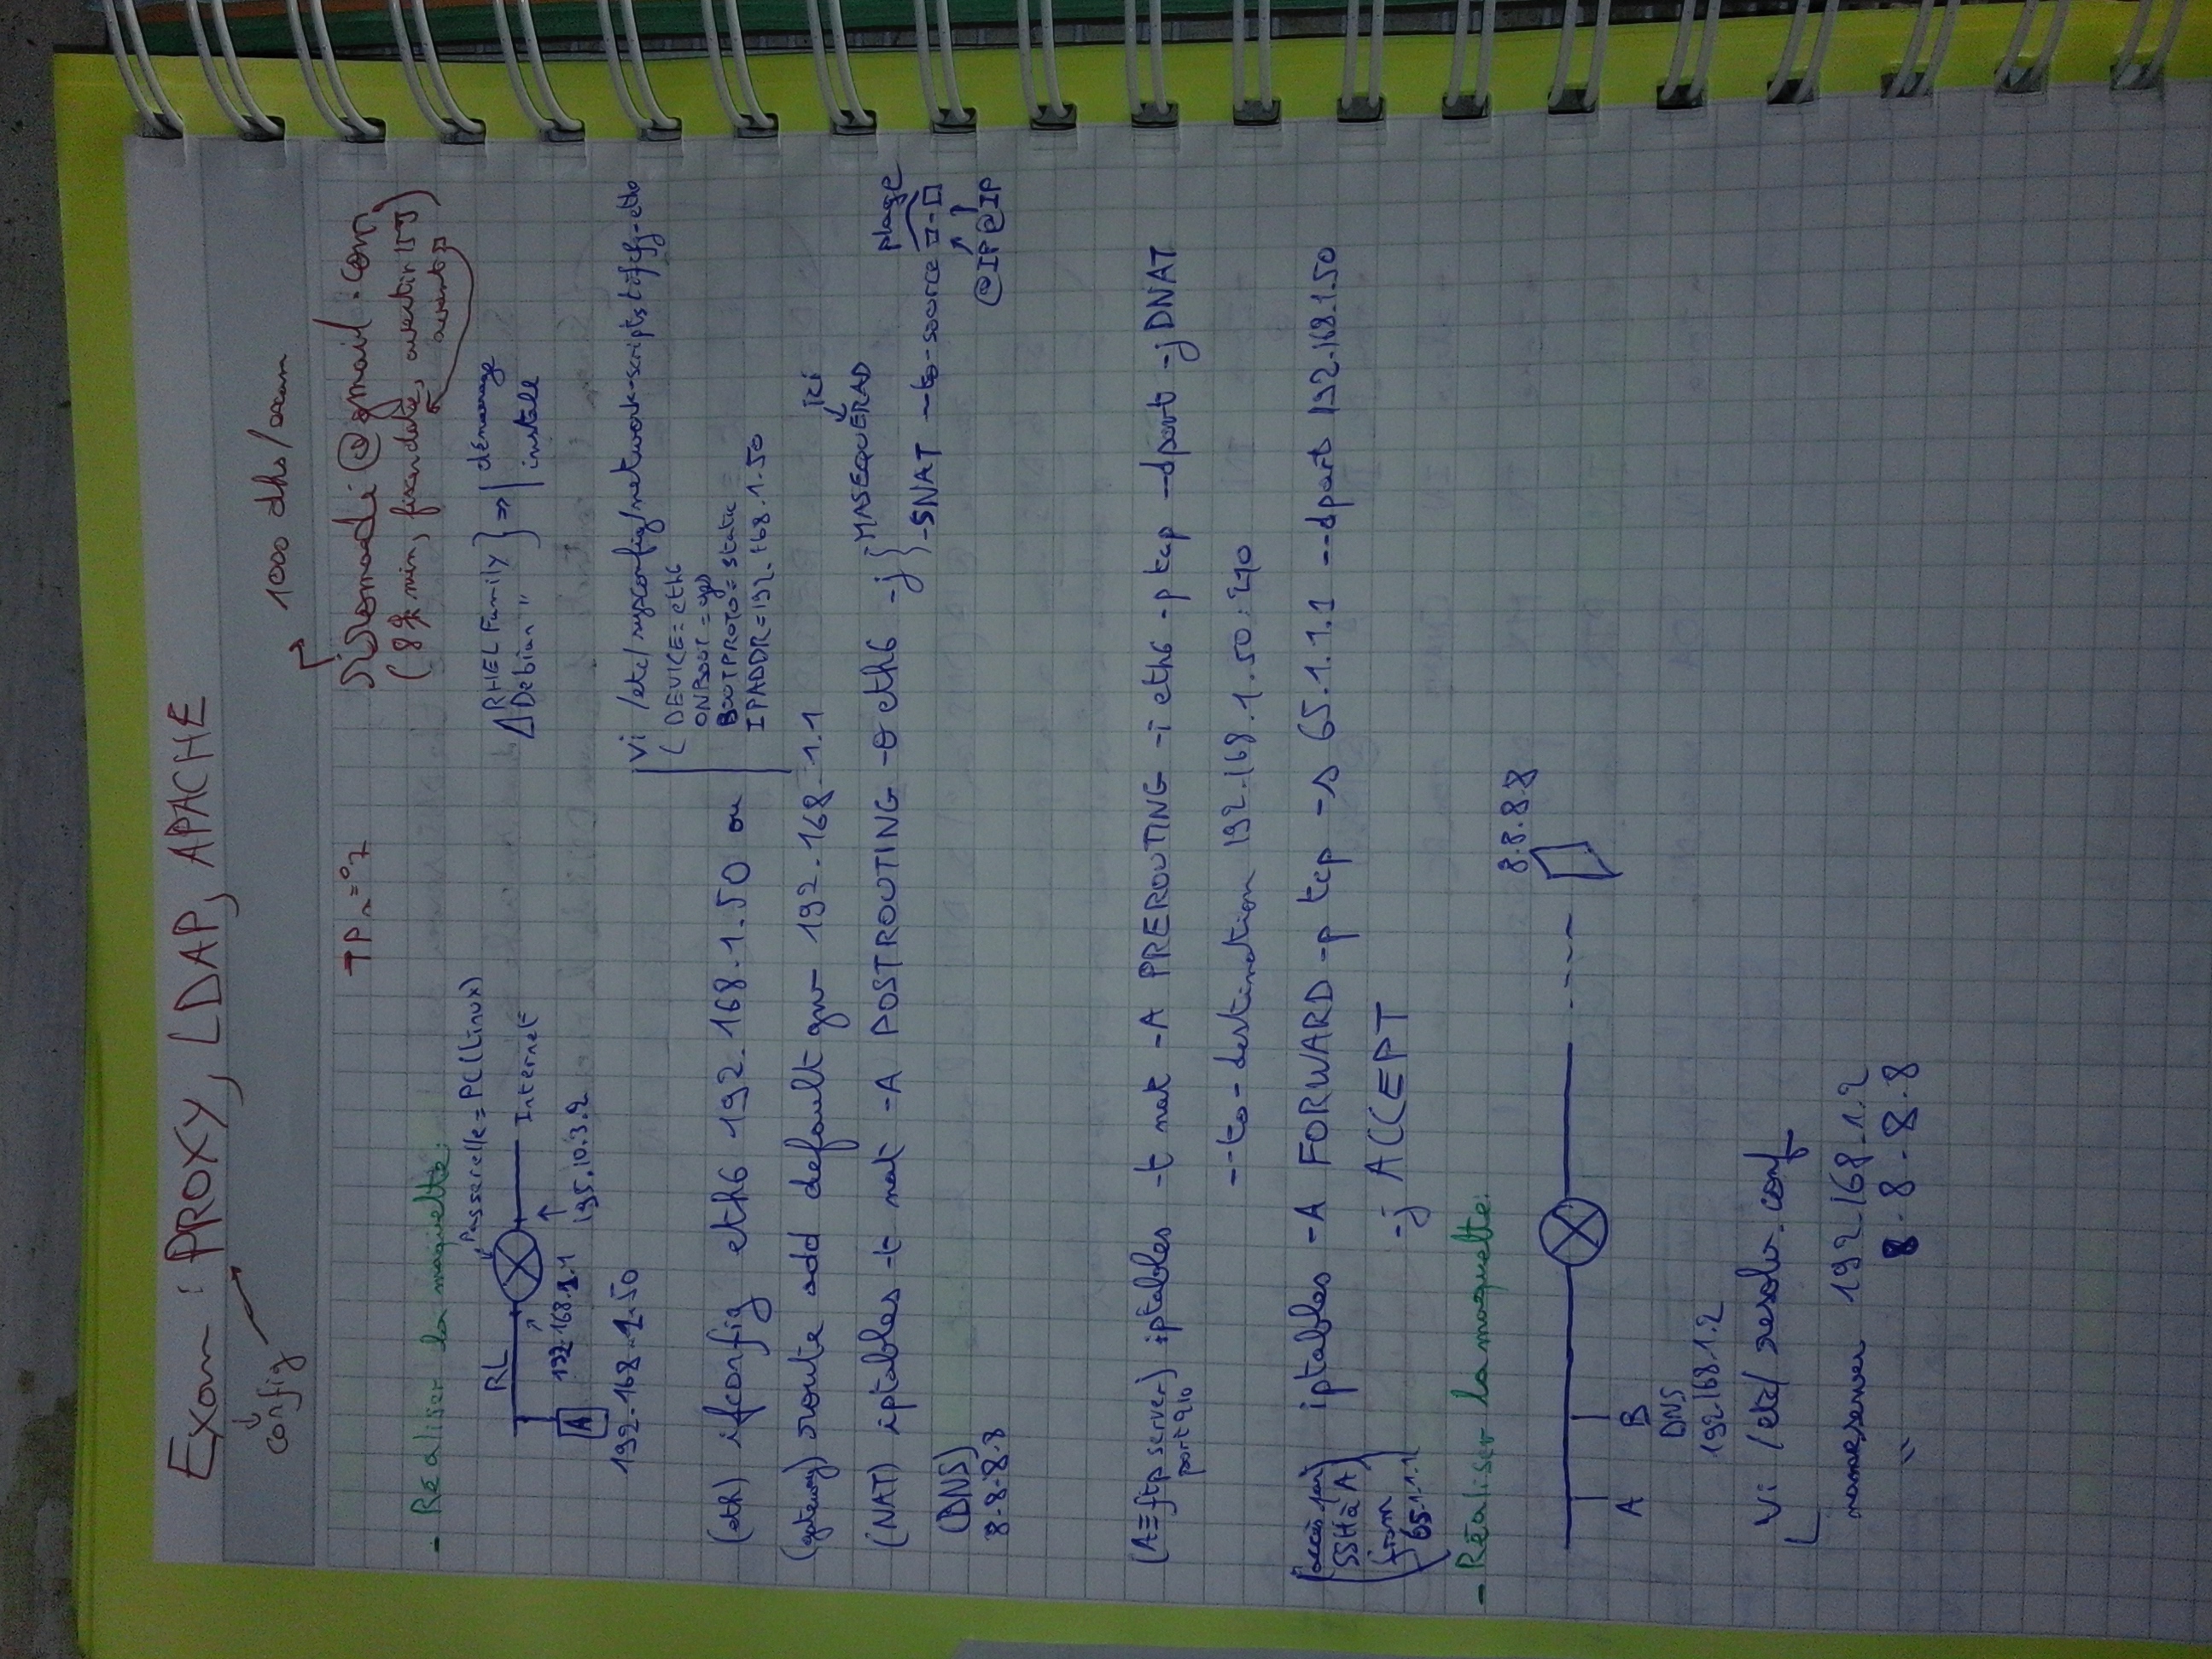 Exam : PROXY, LDAP, APACHE
config
1000 dhs / exam
TP n=°7
@gmail.com
(8 min, fixer date, avertir 15J avant)
- Réaliser la maquette:
Passerelle = PC (Linux)
RL
Internet
192.168.1.1
195.10.3.2
A
192.168.1.50
Δ RHEL Family
Debian "
=> démarrage
install
vi /etc/sysconfig/network-scripts/ifcfg-eth0
DEVICE=eth6
ONBOOT=yes
BOOTPROTO=static
IPADDR=192.168.1.50
(eth) ifconfig eth6 192.168.1.50 ou
(gateway) route add default gw 192.168.1.1
ici
(NAT) iptables -t nat -A POSTROUTING -o eth6 -j
- MASEQUERAD
- SNAT --to-source □-□
plage
@IP @IP
(DNS)
8.8.8.8
(A≡ftp server) iptables -t nat -A PREROUTING -i eth6 -p tcp --dport -j DNAT
port 210
--to-destination 192.168.1.50:210
(accès par SSH à A from 65.1.1.1)
iptables -A FORWARD -p tcp -s 65.1.1.1 --dport 192.168.1.50
-j ACCEPT
- Réaliser la maquette:
8.8.8.8
A B
DNS
192.168.1.2
vi /etc/resolv.conf
nameserver 192.168.1.2
" 8.8.8.8